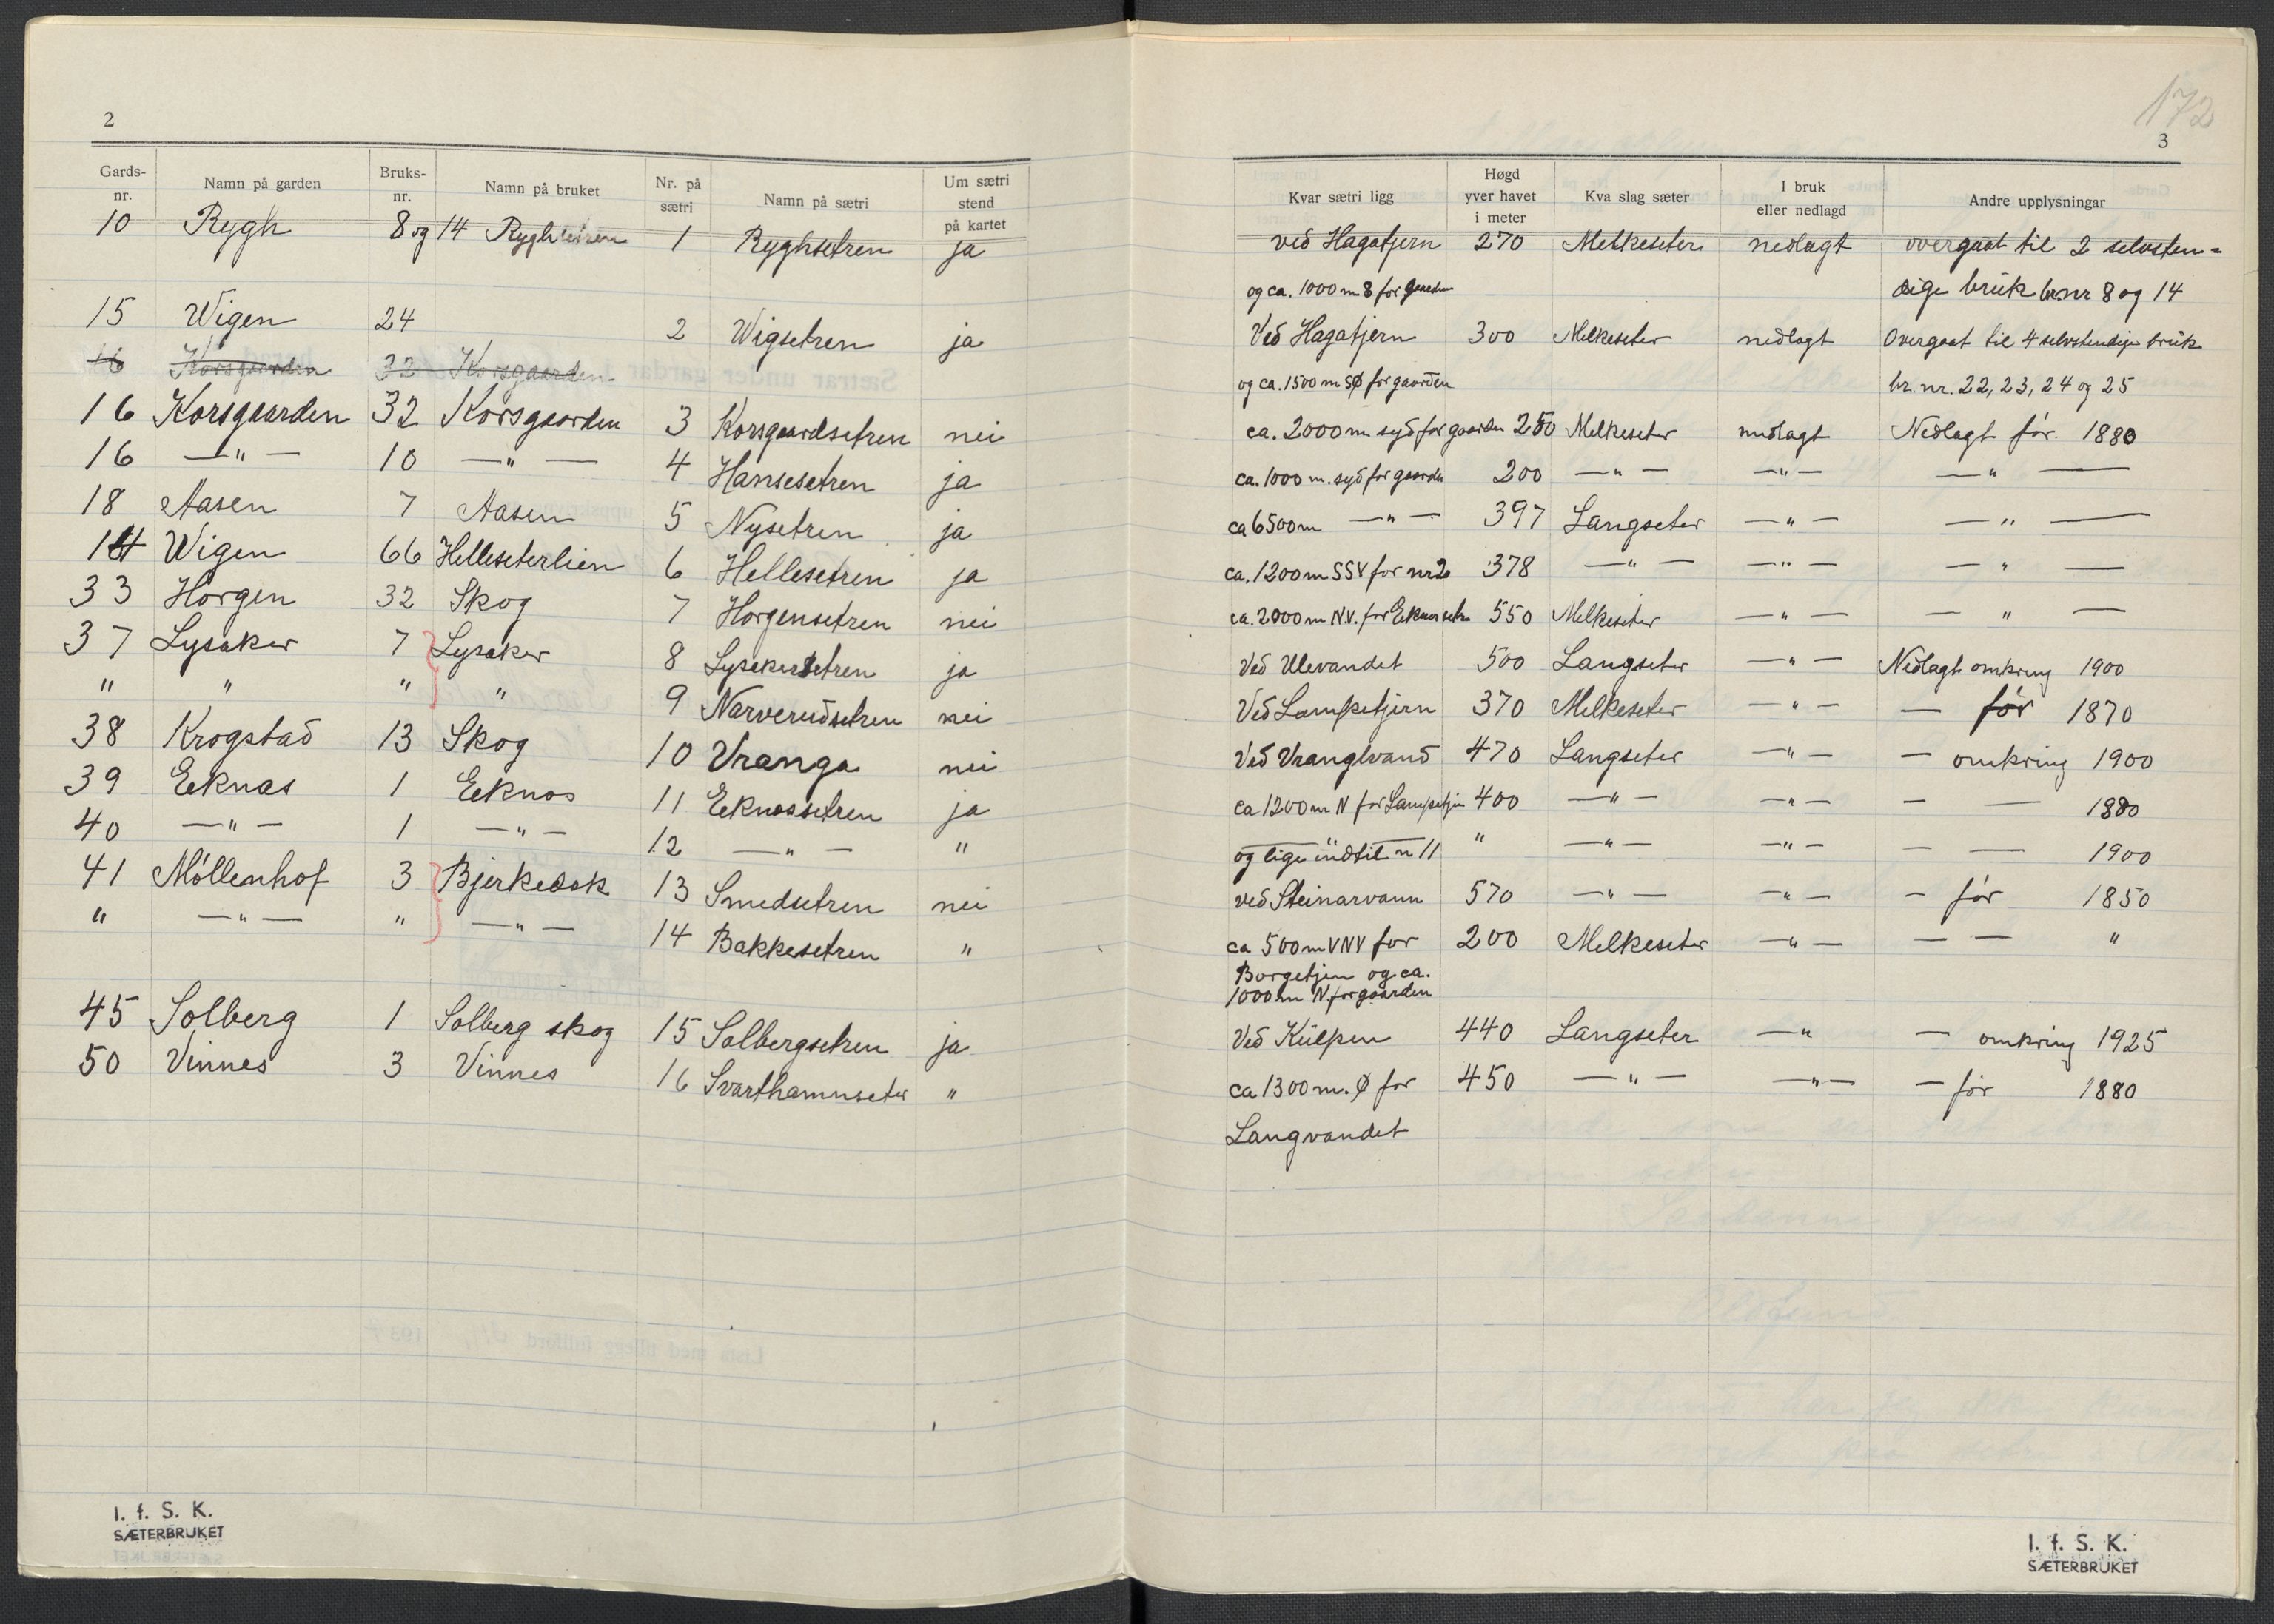 2
Gards-nr. Namn på garden Bruks-nr. Namn på bruket Nr. på sætri Namn på sætri Um sætri stend på kartet
10 Rygh 8 og 14 Ryghsetren 1 Ryghsetren ja
15 Wigen 24 2 Wigsetren ja
16 Korsgaarden 32 Korsgaarden
16 Korsgaarden 32 Korsgaarden 3 Korsgaardsetren nei
16 —"— 10 —"— 4 Hansesetren ja
18 Aasen 7 Aasen 5 Nysetren ja
14 Wigen 66 Helleseterlien 6 Hellesetren ja
33 Horgen 32 Skog 7 Horgensetren nei
37 Lysaker 7 Lysaker 8 Lysakersetren ja
" " " " 9 Narverudsetren nei
38 Krogstad 13 Skog 10 Vranga nei
39 Eeknas 1 Eeknas 11 Eeknassetren ja
40 —"— 1 —"— 12 —"— "
41 Möllenhof 3 Bjerkedok 13 Smedsetren nei
" —"— " —"— 14 Bakkesetren "
45 Solberg 1 Solberg skog 15 Solbergsetren ja
50 Vinnes 3 Vinnes 16 Svarthamnseter "
I. f. S. K.
SÆTERBRUKET
172
3
Kvar sætri ligg Høgd yver havet i meter Kva slag sæter I bruk eller nedlagd Andre upplysningar
ved Hagatjern 270 Melkeseter nedlagt overgaat til 2 selvsten=
og ca. 1000 m S for gaarden dige bruk br.nr 8 og 14
Ved Hagatjern 300 Melkeseter nedlagt Overgaat til 4 selvstendige bruk
og ca. 1500 m SØ for gaarden br. nr. 22, 23, 24 og 25
ca. 2000 m syd for gaarden 250 Melkeseter nedlagt Nedlagt før 1880
ca. 1000 m. syd for gaarden 200 —"— —"— —"—
ca 6500 m —"— 397 Langseter —"— —"—
ca. 1200 m SSV for nr 2 378 —"— —"— —"—
ca. 2000 m N.V. for Eeknassetr 550 Melkeseter —"— —"—
Ved Ulevandet 500 Langseter —"— Nedlagt omkring 1900
Ved Lampetjern 370 Melkeseter —"— — før 1870
Ved Vranglvand 470 Langseter —"— — omkring 1900
ca 1200 m N for Lampetjern 400 —"— —"— — — 1880
og lige indtil n 11 " —"— —"— — — 1900
ved Steinarvann 570 —"— —"— — før 1850
ca 500 m VNV for 200 Melkeseter —"— — — "
Borgetjern og ca.
1000 m N for gaarden
Ved Külpen 440 Langseter —" — omkring 1925
ca 1300 m. Ø for 450 —"— —"— — før 1880
Langvandet
I. f. S. K.
SÆTERBRUKET